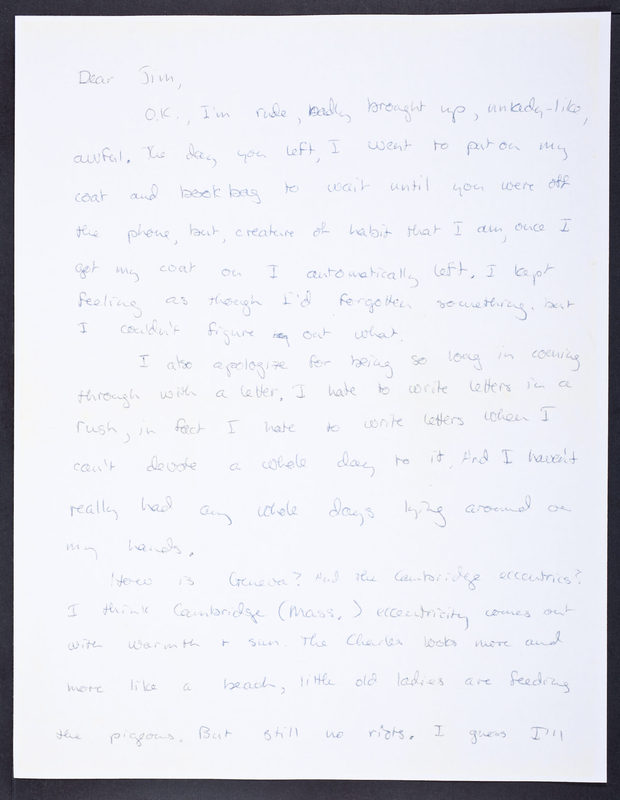 Dear Jim,
O.K., I'm rude, badly brought up, unlady-like,
awful. The day you left, I went to put on my
coat and book bag to wait until you were off
the phone, but, creature of habit that I am, once I
got my coat on I automatically left. I kept
feeling as though I'd forgotten something, but
I couldn't figure out what.
I also apologize for being so long in coming
through with a letter. I hate to write letters in a
rush, in fact I hate to write letters when I
can't devote a whole day to it. And I haven't
really had any whole days lying around on
my hands.
How is Geneva? And the Cambridge eccentrics?
I think Cambridge (Mass.) eccentricity comes out
with warmth + sun. The Charles looks more and
more like a beach, little old ladies are feeding
the pigeons. But still no riots. I guess I'll